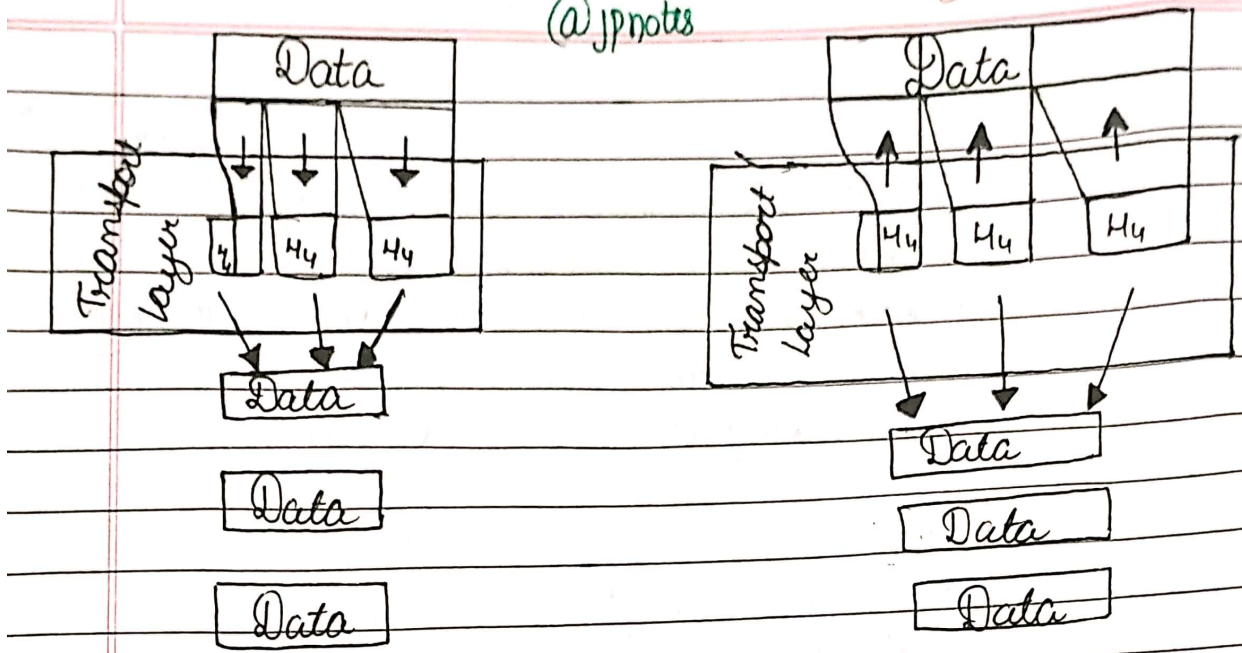 @jpnotes
Data
Transport
Layer
H4
H4
H4
Data
Data
Data
Data
Transport
Layer
H4
H4
H4
Data
Data
Data